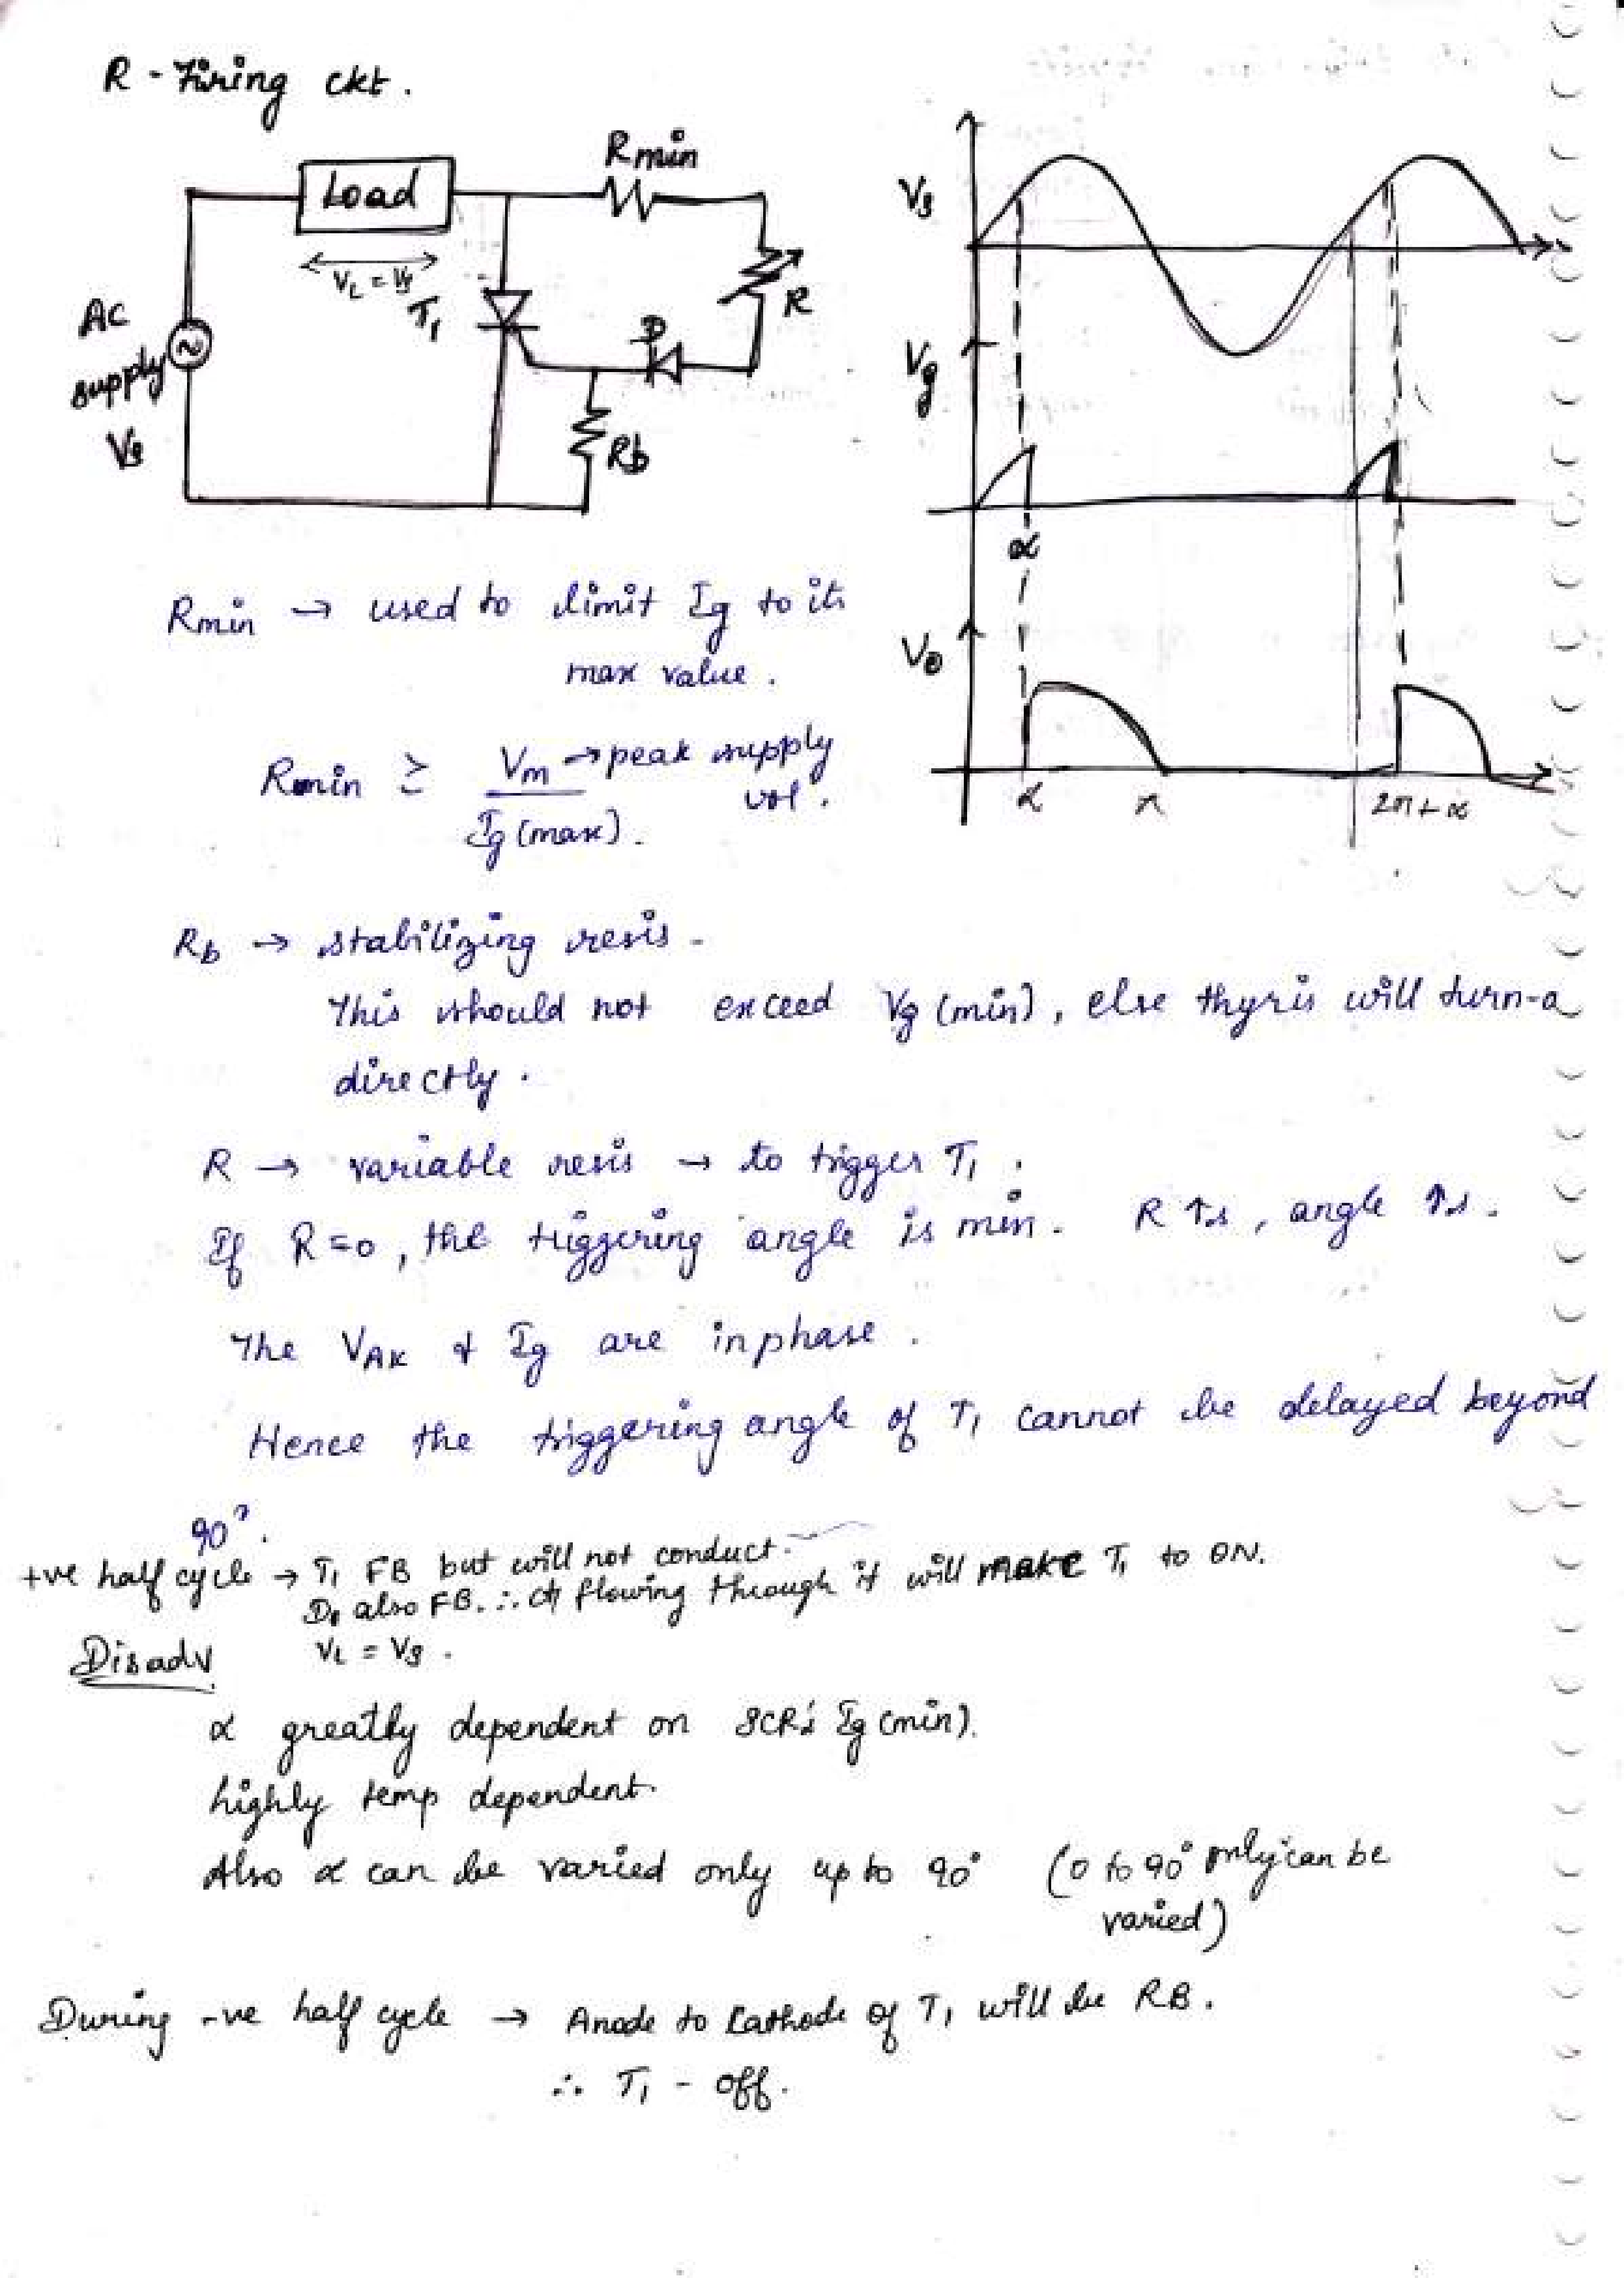 R - Firing ckt.
Rmin
Load
VL = Vs
T1
R
D
Rb
AC
supply
Vs
Vs
Vg
α
Vo
α
π
2π + α
Rmin → used to limit Ig to its
max value.
Rmin ≥ Vm → peak supply
vol.
Ig (max).
Rb → stabilizing resis -
This should not exceed Vg (min), else thyris will turn-
directly.
R → variable resis → to trigger T1.
If R = 0, the triggering angle is min. R ↑s, angle ↑s.
The VAK & Ig are in phase.
Hence the triggering angle of T1 cannot be delayed beyond
90°.
+ve half cycle → T1 FB but will not conduct.
D also FB. ∴ flowing through it will make T1 to ON.
VL = Vs.
Disadv
α greatly dependent on SCR's Ig (min).
highly temp dependent.
Also α can be varied only up to 90° (0 to 90° only can be
varied)
During -ve half cycle → Anode to Cathode of T1 will be RB.
∴ T1 - off.